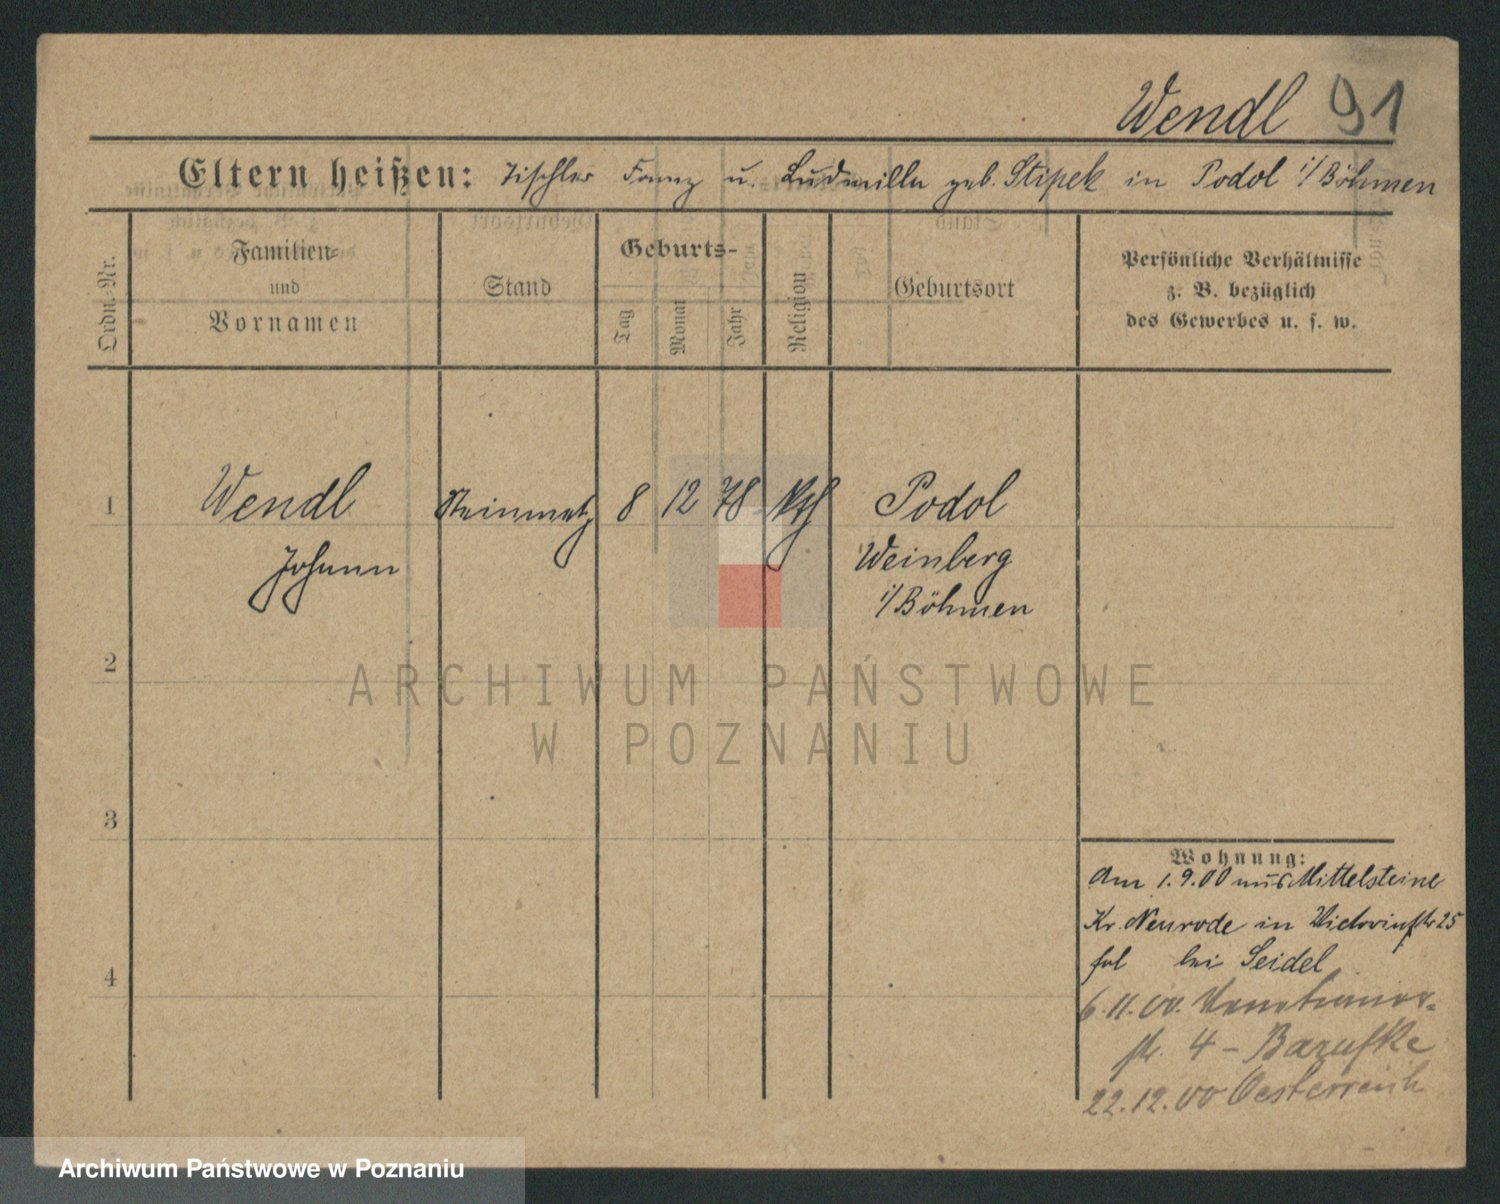 Wendl 91
Eltern heißen: Tischler Franz u. Ludmilla geb. Stipek in Podol i/Böhmen
Ordn.-Nr.
Familien-
und
Vornamen
Stand
Geburts-
Tag
Monat
Jahr
Religion
Geburtsort
Persönliche Verhältnisse
z. B. bezüglich
des Gewerbes u. s. w.
1 Wendl Steinmetz 8 12 78 kth Podol
Johann Weinberg
i/Böhmen
2
ARCHIWUM PAŃSTWOWE
W POZNANIU
3
Wohnung:
Am 1.9.00 aus Mittelsteine
Kr. Neurode in Victoriastr 25
bei Seidel
4
6.11.00.
str. 4 - Barufke
22.12.00 Oesterreich
Archiwum Państwowe w Poznaniu